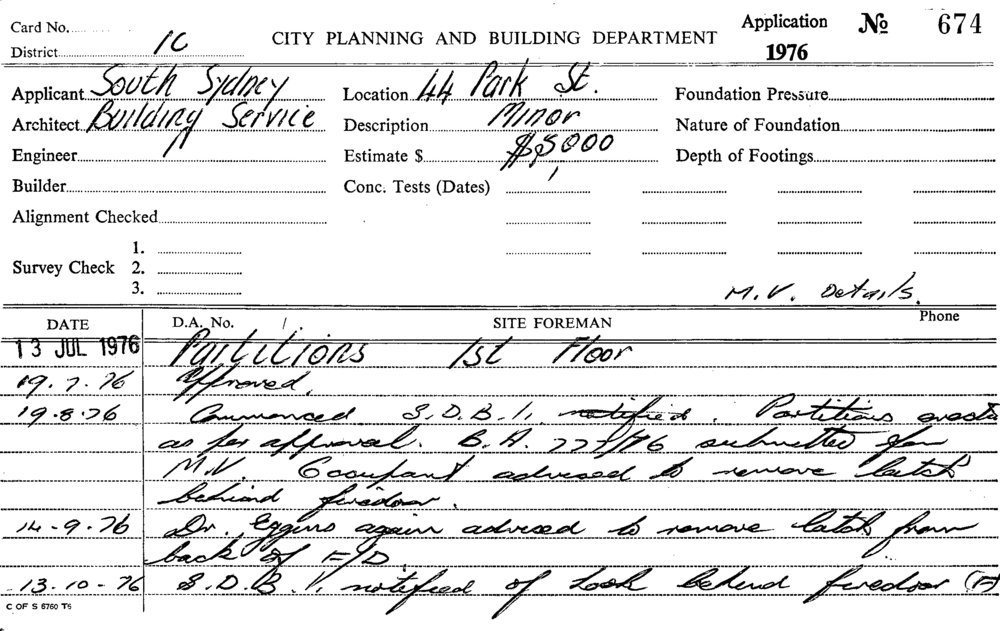 Card No. Application № 674
District 1C CITY PLANNING AND BUILDING DEPARTMENT 1976
Applicant South Sydney Location 44 Park St. Foundation Pressure
Architect Building Service Description Minor Nature of Foundation
Engineer Estimate $ $5,000 Depth of Footings
Builder Conc. Tests (Dates)
Alignment Checked
1.
Survey Check 2.
3.
M.V. Details.
DATE D.A. No. SITE FOREMAN Phone
13 JUL 1976 Partitions 1st Floor
19.7.76 Approved.
19.8.76 Commenced S.D.B.I. notified. Partitions
as per approval. B.A. submitted for
M.V. Occupant advised to remove latch
behind firedoor.
14-9-76 Dr. Eggins again advised to remove latch from
back of F/D.
13.10-76 S.D.B.I. notified of Lock behind firedoor (F)
C OF S 6760 T6